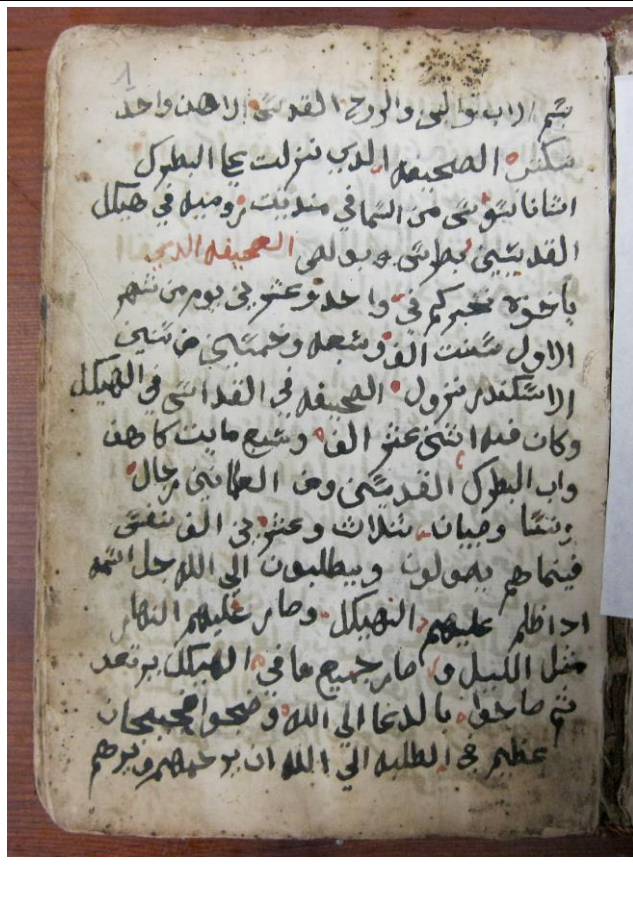 1
بسم الاب والابن والروح القدس الاهن واحد
نكتب الصحيفه الذي نزلت علي البطرك
اتناناسيوس من السما في مدينت روميه في هيكل
القديسين بطرس وبولص الصحيفه الذي
ياخوه نخبركم في واحد وعشرين يوم من شهر
الاول سنت الف وسبعه وخمسين من سنين
الاسكندر نزول الصحيفه في القداس في الهيكل
وكان فيه اثني عشر الف وسبع مايت كاهن
واب البطرك القديس ومن العلمانين رجال
ونسا وصبيان ثلاث وعشرين الف نفس
فبينماهم يصلون ويطلبون الي الله جل اسمه
اداظلم عليهم الهيكل وصار عليهم النهار
مثل الليل و صار جميع ما في الهيكل يرتعد
ثم صاحوا بالدعا الي الله وضجوا
عظيم في الطلبه الي الله ان يرحمهم